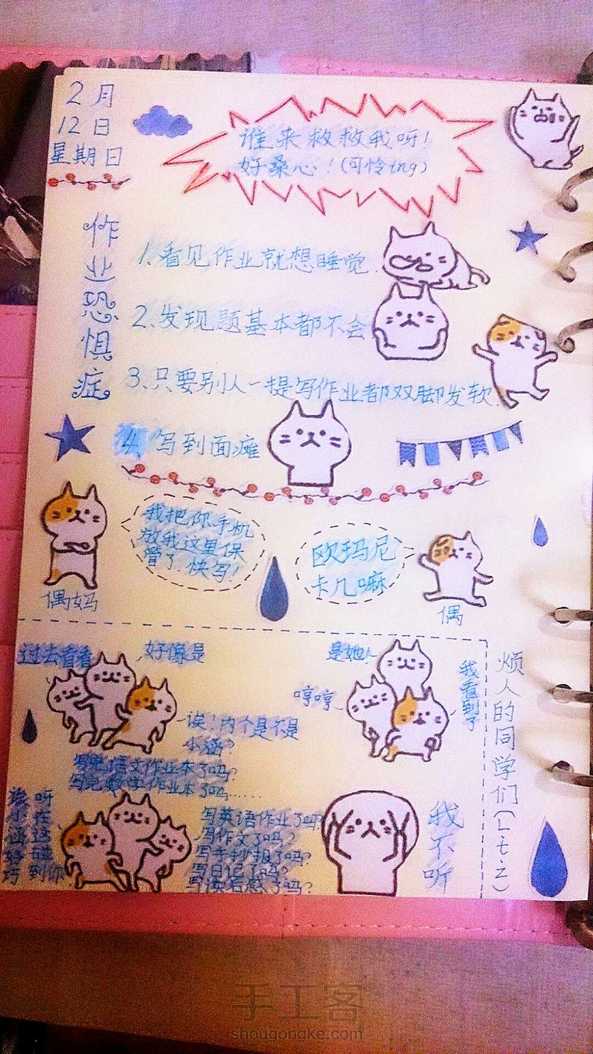 2月
12日
星期日
谁来救救我呀!
好桑心!(可怜ing)
作业恐惧症
1、看见作业就想睡觉.
2、发现题基本都不会
3、只要别人一提写作业都双脚发软.
4、写到面瘫
我把你手机
放我这里保
管了.快写!
欧玛尼
卡几嘛
偶妈
偶
过去看看
好像是
诶!内个是不是
小涵?
是她人
哼哼
我看到了
烦人的同学们(L.t.z)
写完语文作业本了吗?
写完数学作业本了吗……
诶小涵好巧
呀在这碰到你
写英语作业了吗?
写作文了吗?
写手抄报了吗?
写日记了吗?
写读后感了吗?
我不听
手工客
shougongke.com